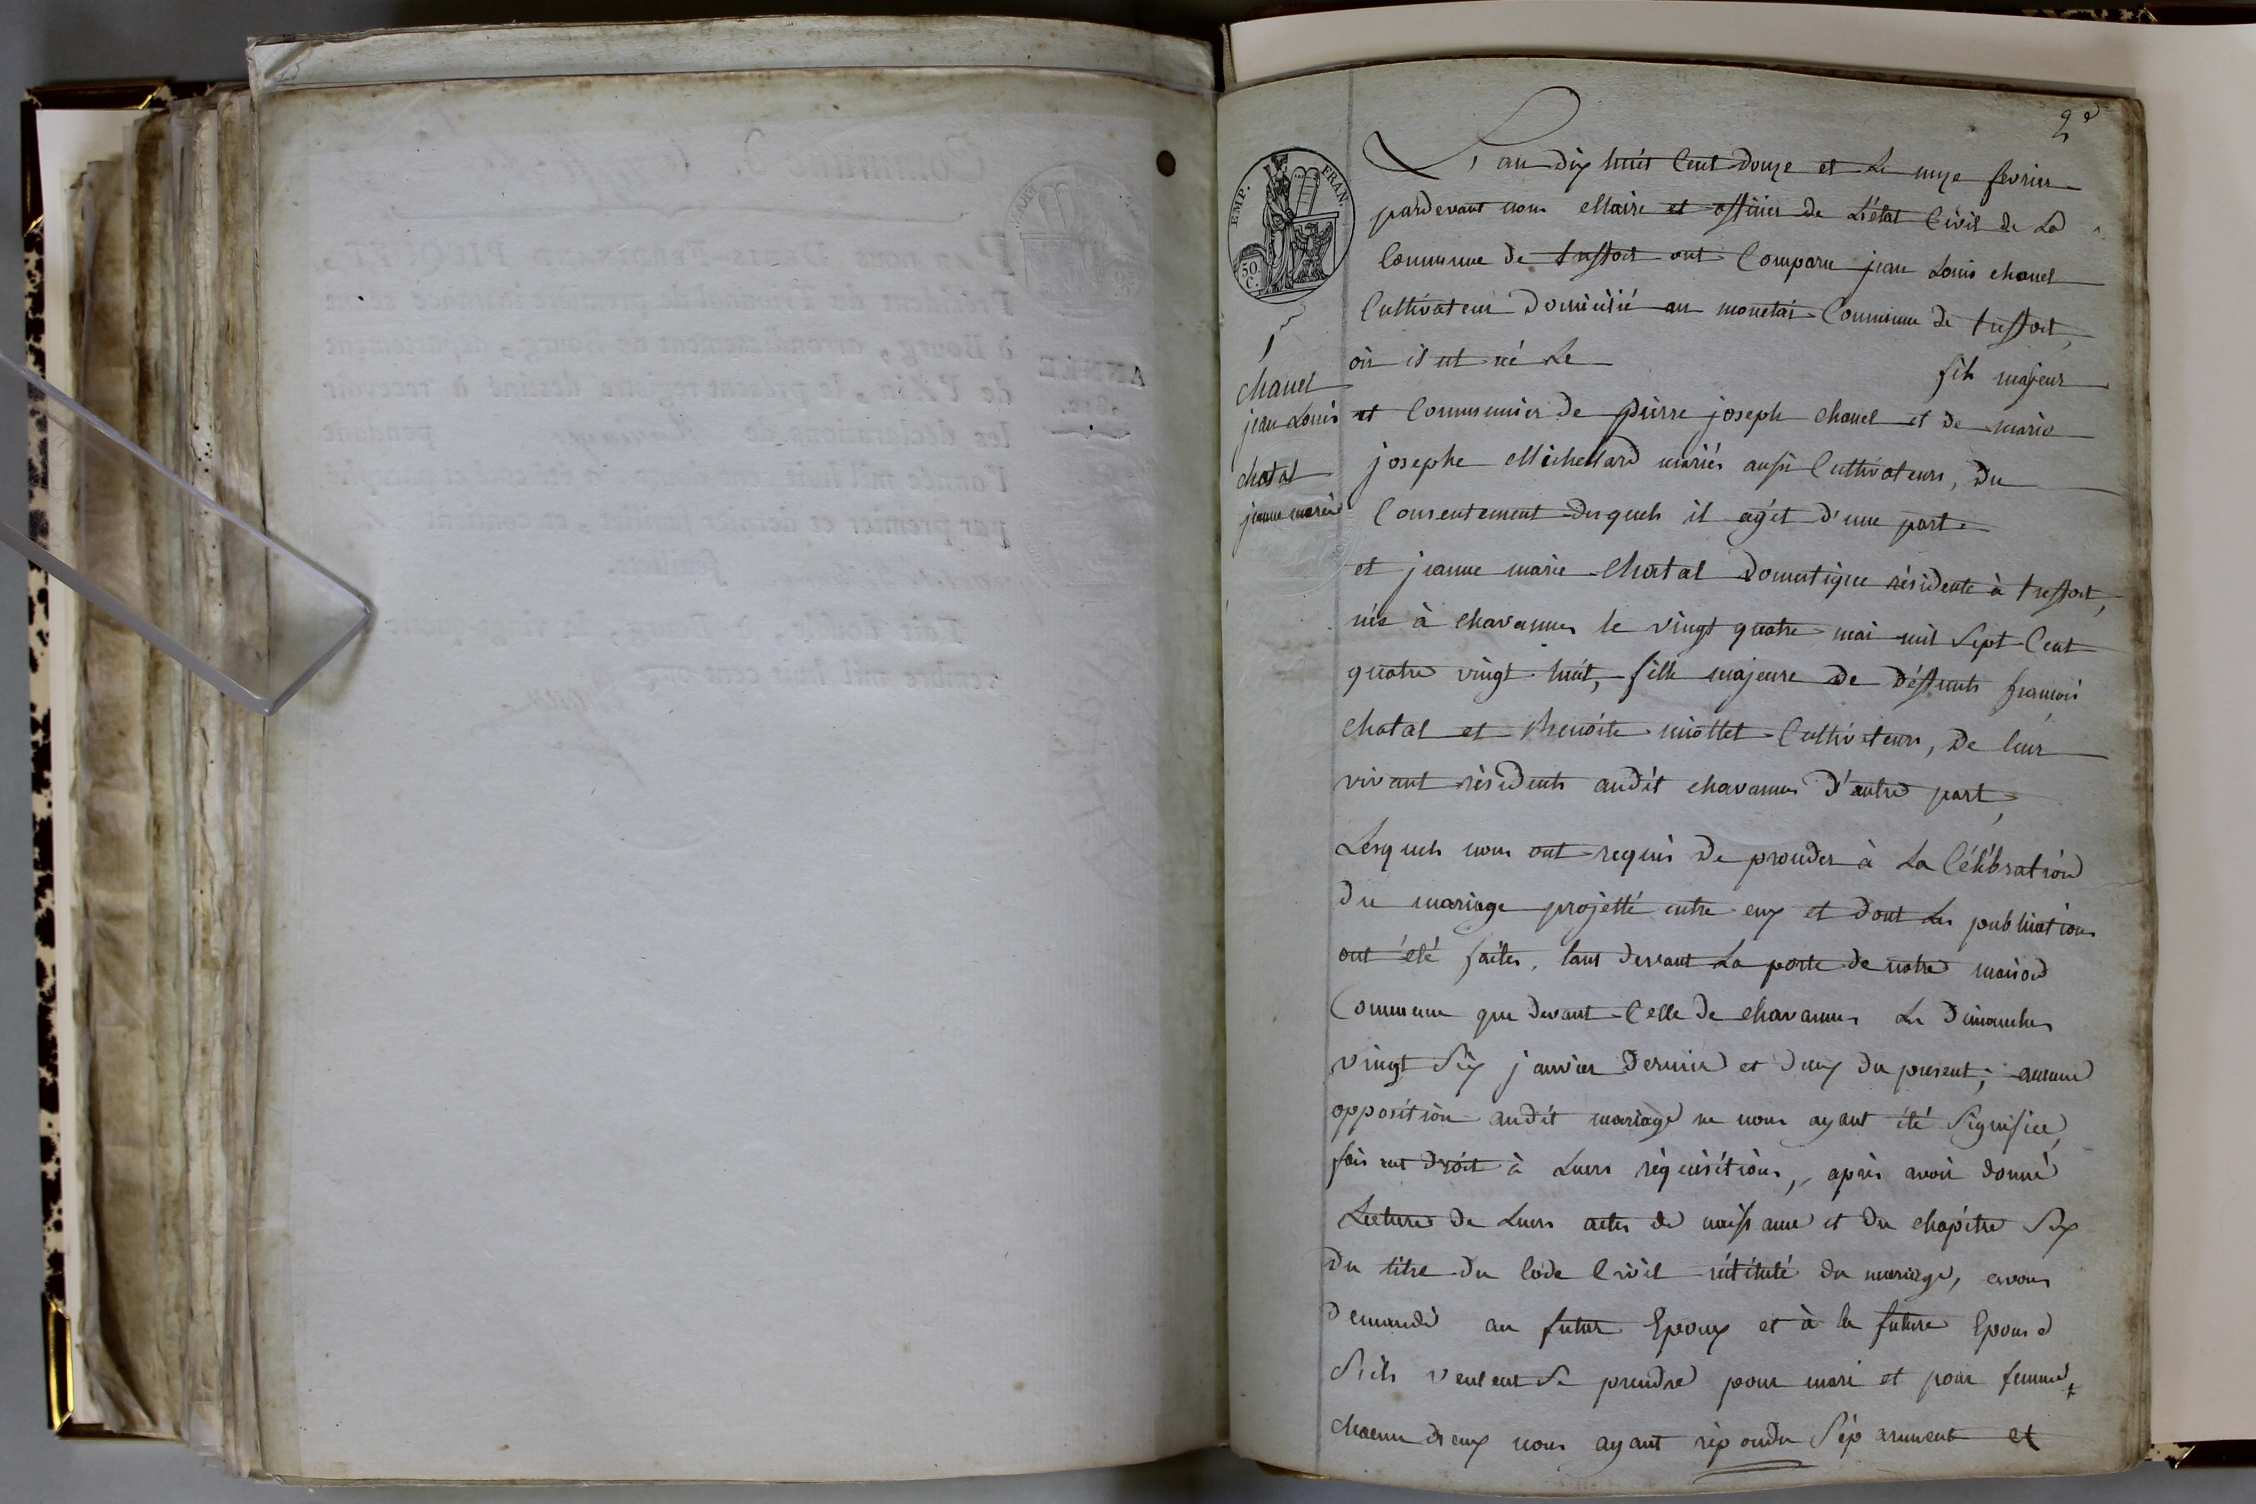 2e
L'an dix huit Cent Douze et Le onze fevrier
pardevant nous Maire et officier de L'état Civil de La
Commune de treffort ont Comparu jean Louis chanel
Cultivateur Domicilié au monetai Commune de treffort,
où il est né Le fils majeur
et Commumier de pierre joseph chanel et de marie
josephe Michellard mariés aussi Cultivateurs, du
Consentement desquels il agit d'une part.
et jeanne marie Chatal Domestique résidente à treffort,
née à chavannes le vingt quatre mai mil Sept Cent
quatre vingt huit, fille majeure de déffunts francois
chatal et Benoite miottet Cultivateurs, De leur
vivant résidents audit chavannes d'autre part,
Lesquels nous ont requis De proceder à La Célébration
Du mariage projetté entre eux et dont Les publications
ont été faites, tant devant La porte de notre maison
Commune que devant Celle de chavannes Les Dimanches
vingt Six janvier dernier et deux du present; aucune
opposition audit mariage ne nous ayant été Signifiee,
faisant droit à Leurs réquisitions, après avoir donné
Lecture de Leurs actes de naissance et du chapitre Six
Du titre du Code Civil intitulé du mariage, avons
Demandé au futur Epoux et à la future Epouse
S'ils veulent Se prendre pour mari et pour femme,
chacun d'eux nous ayant répondu Séparement et
EMP. FRAN.
50.
C.
1
chanel
jean Louis
chatal
jeanne marie
ANNÉE
1812.